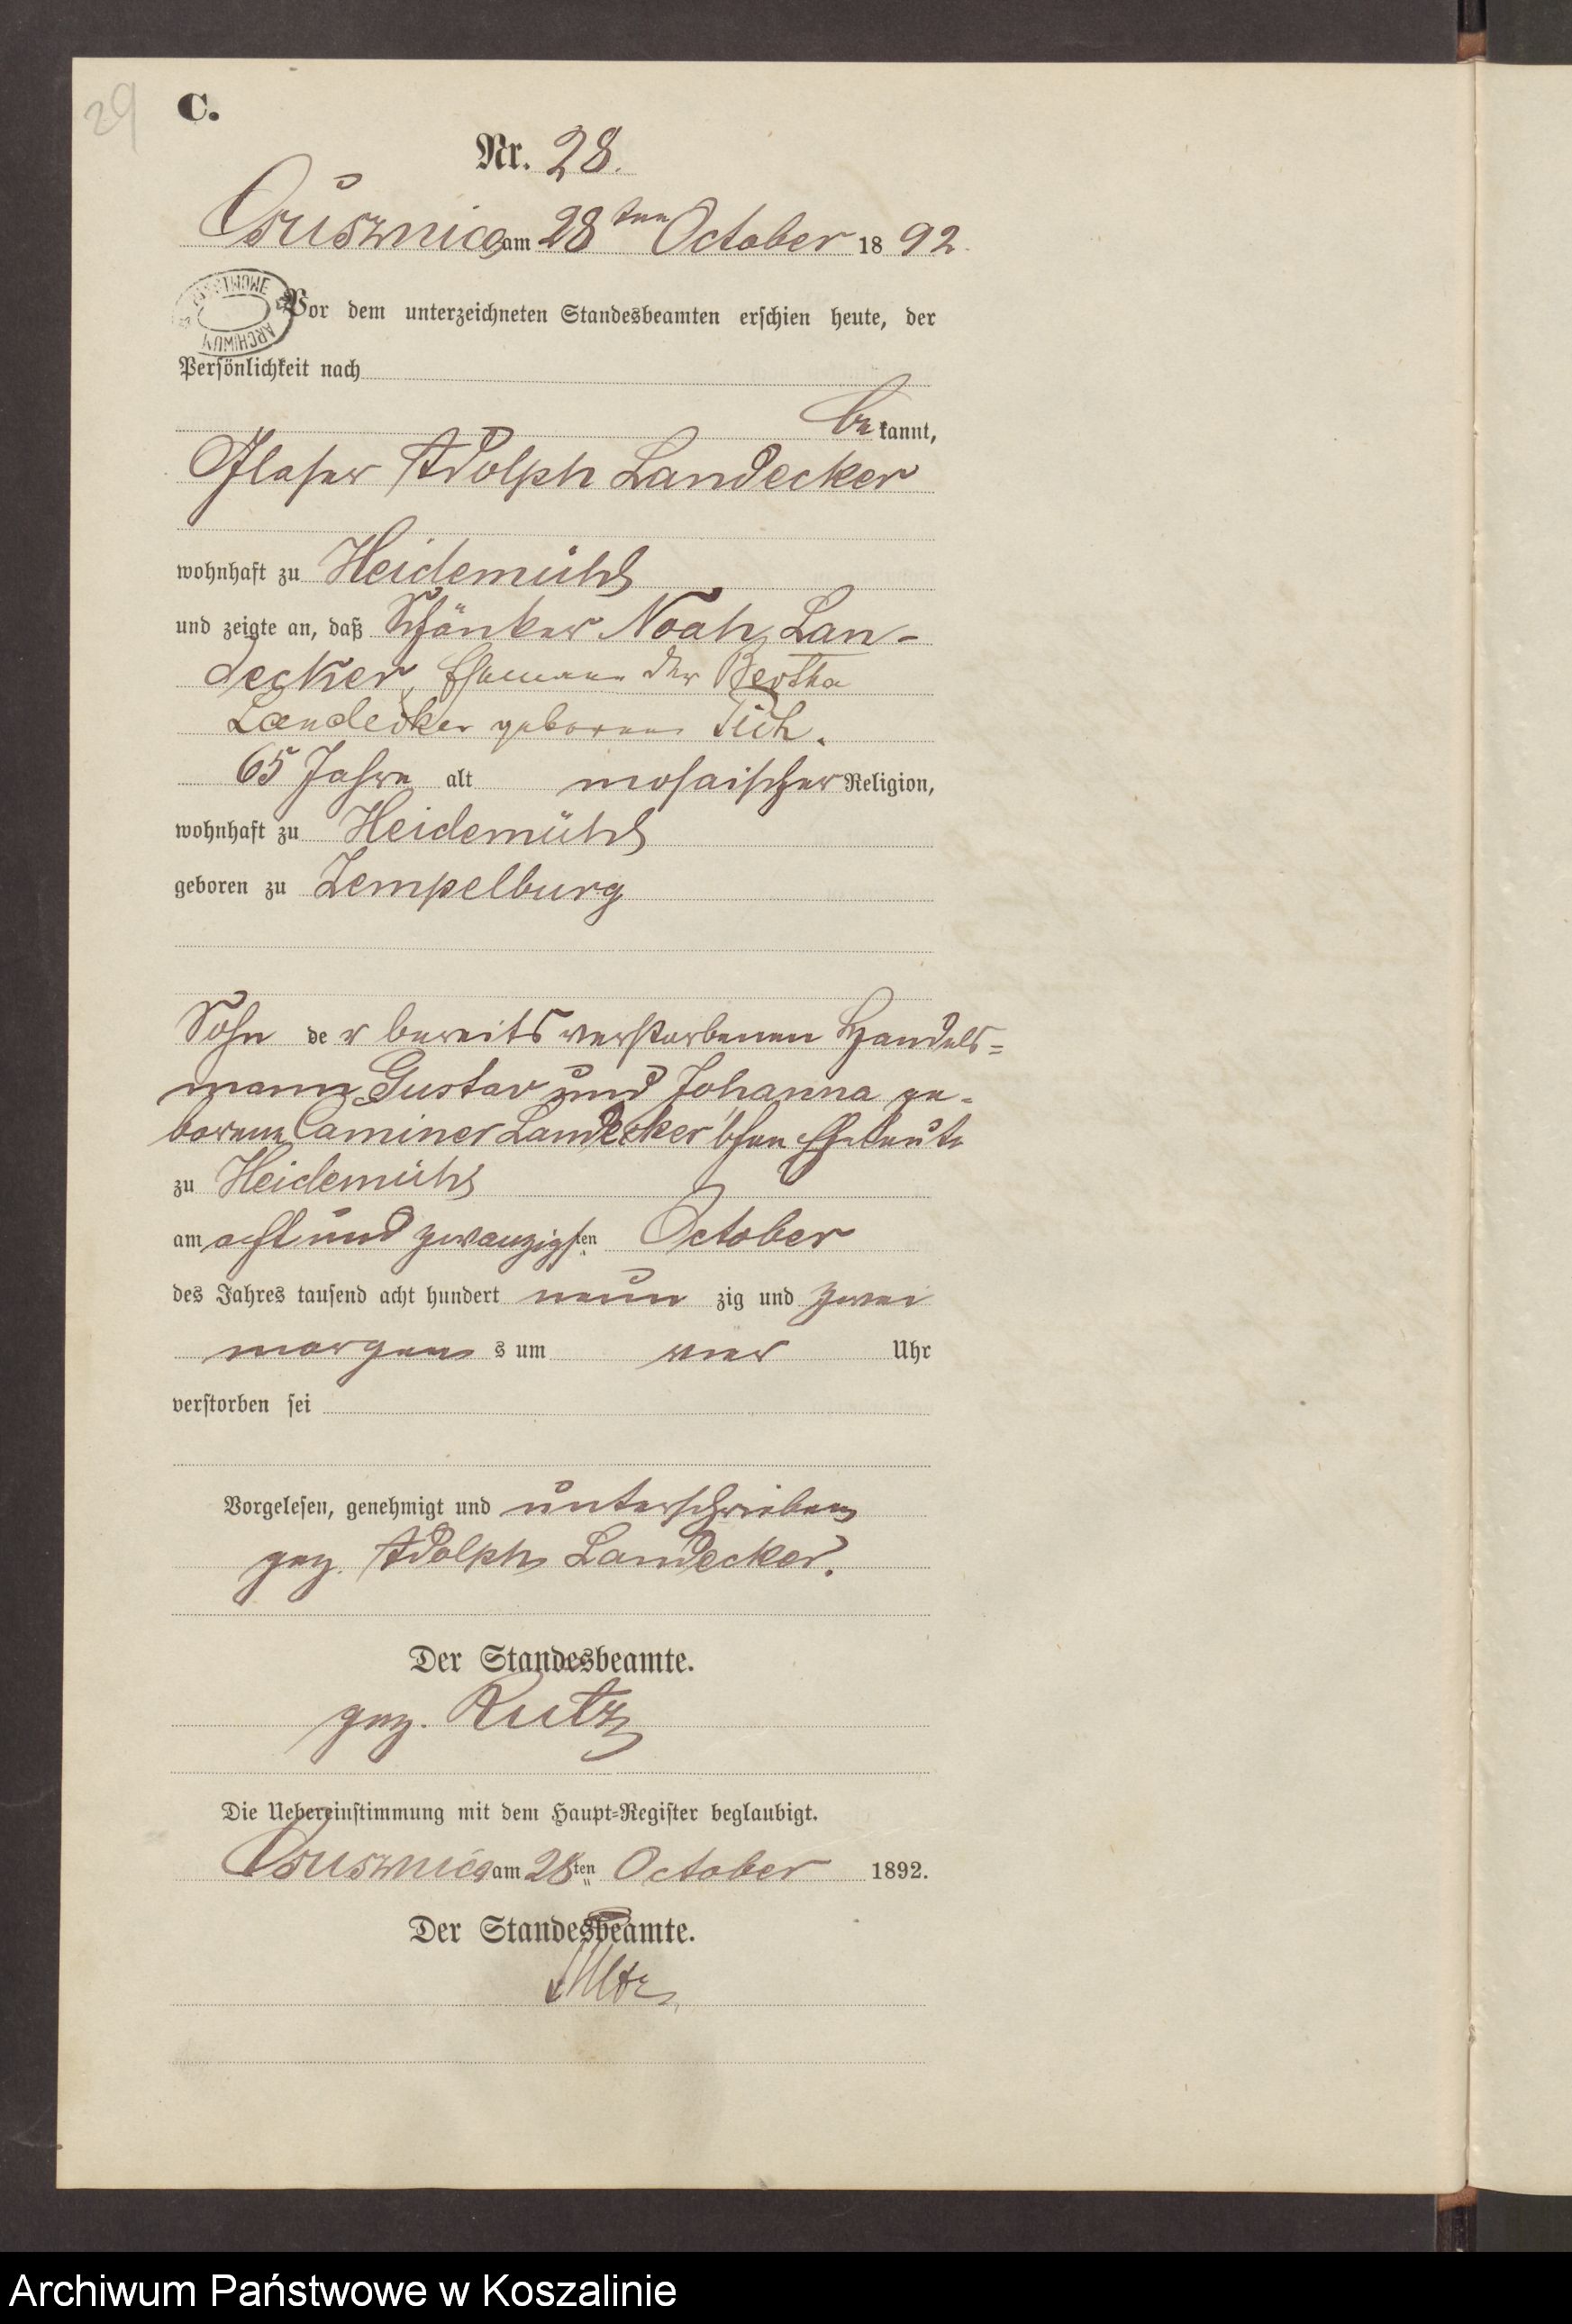 29
C.
Nr. 28.
am 28ten October 1892.
PAŃSTWOWE ARCHIWUM
Vor dem unterzeichneten Standesbeamten erschien heute, der
Persönlichkeit nach
bekannt,
Glaser Adolph Landecker
wohnhaft zu Heidemühl
und zeigte an, daß Schänker Noah Lan-
decker, Ehemann der Bertha
Landecker geborene
65 Jahre alt mosaischer Religion,
wohnhaft zu Heidemühl
geboren zu Zempelburg
Sohn der bereits verstorbenen Handels=
mann Gustav und Johanna ge-
borene Caminer Landecker'schen Eheleute
zu Heidemühl
am acht und zwanzigsten October
des Jahres tausend acht hundert neun zig und zwei
morgens um vier Uhr
verstorben sei
Vorgelesen, genehmigt und unterschrieben
gez. Adolph Landecker.
Der Standesbeamte.
gez. Rutz
Die Uebereinstimmung mit dem Haupt=Register beglaubigt.
am 28ten October 1892.
Der Standesbeamte.
Archiwum Państwowe w Koszalinie